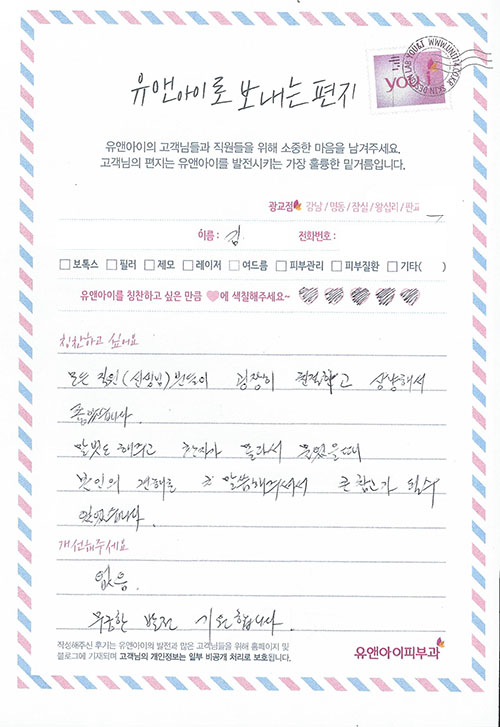 YOU&I WWW.UNIDA.CO.KR
you
유앤아이로 보내는 편지
유앤아이의 고객님들과 직원들을 위해 소중한 마음을 남겨주세요.
고객님의 편지는 유앤아이를 발전시키는 가장 훌륭한 밑거름입니다.
광교점 강남 / 명동 / 잠실 / 왕십리 / 판교
이름 : 김 전화번호 :
보톡스 필러 제모 레이저 여드름 피부관리 피부질환 기타( )
유앤아이를 칭찬하고 싶은 만큼 에 색칠해주세요~
칭찬하고 싶어요
모든 직원(선생님)분들이 굉장히 친절하고 상냥해서
좋았습니다.
말벗도 해주고 환자가 몰라서 물었을때
본인의 견해로 말씀해주셔서 큰 참고가 될수
있었습니다.
개선해주세요
없음.
무궁한 발전 기원합니다.
작성해주신 후기는 유앤아이의 발전과 많은 고객님들을 위해 홈페이지 및
블로그에 기재되며 고객님의 개인정보는 일부 비공개 처리로 보호됩니다.
유앤아이피부과